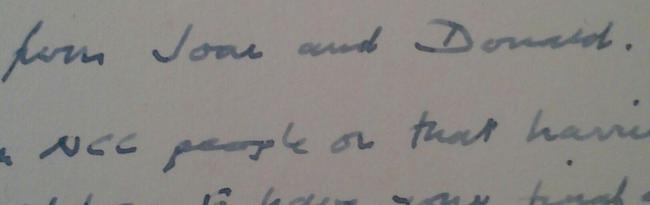 from Joan and Donald.
NCC people on that
to have your